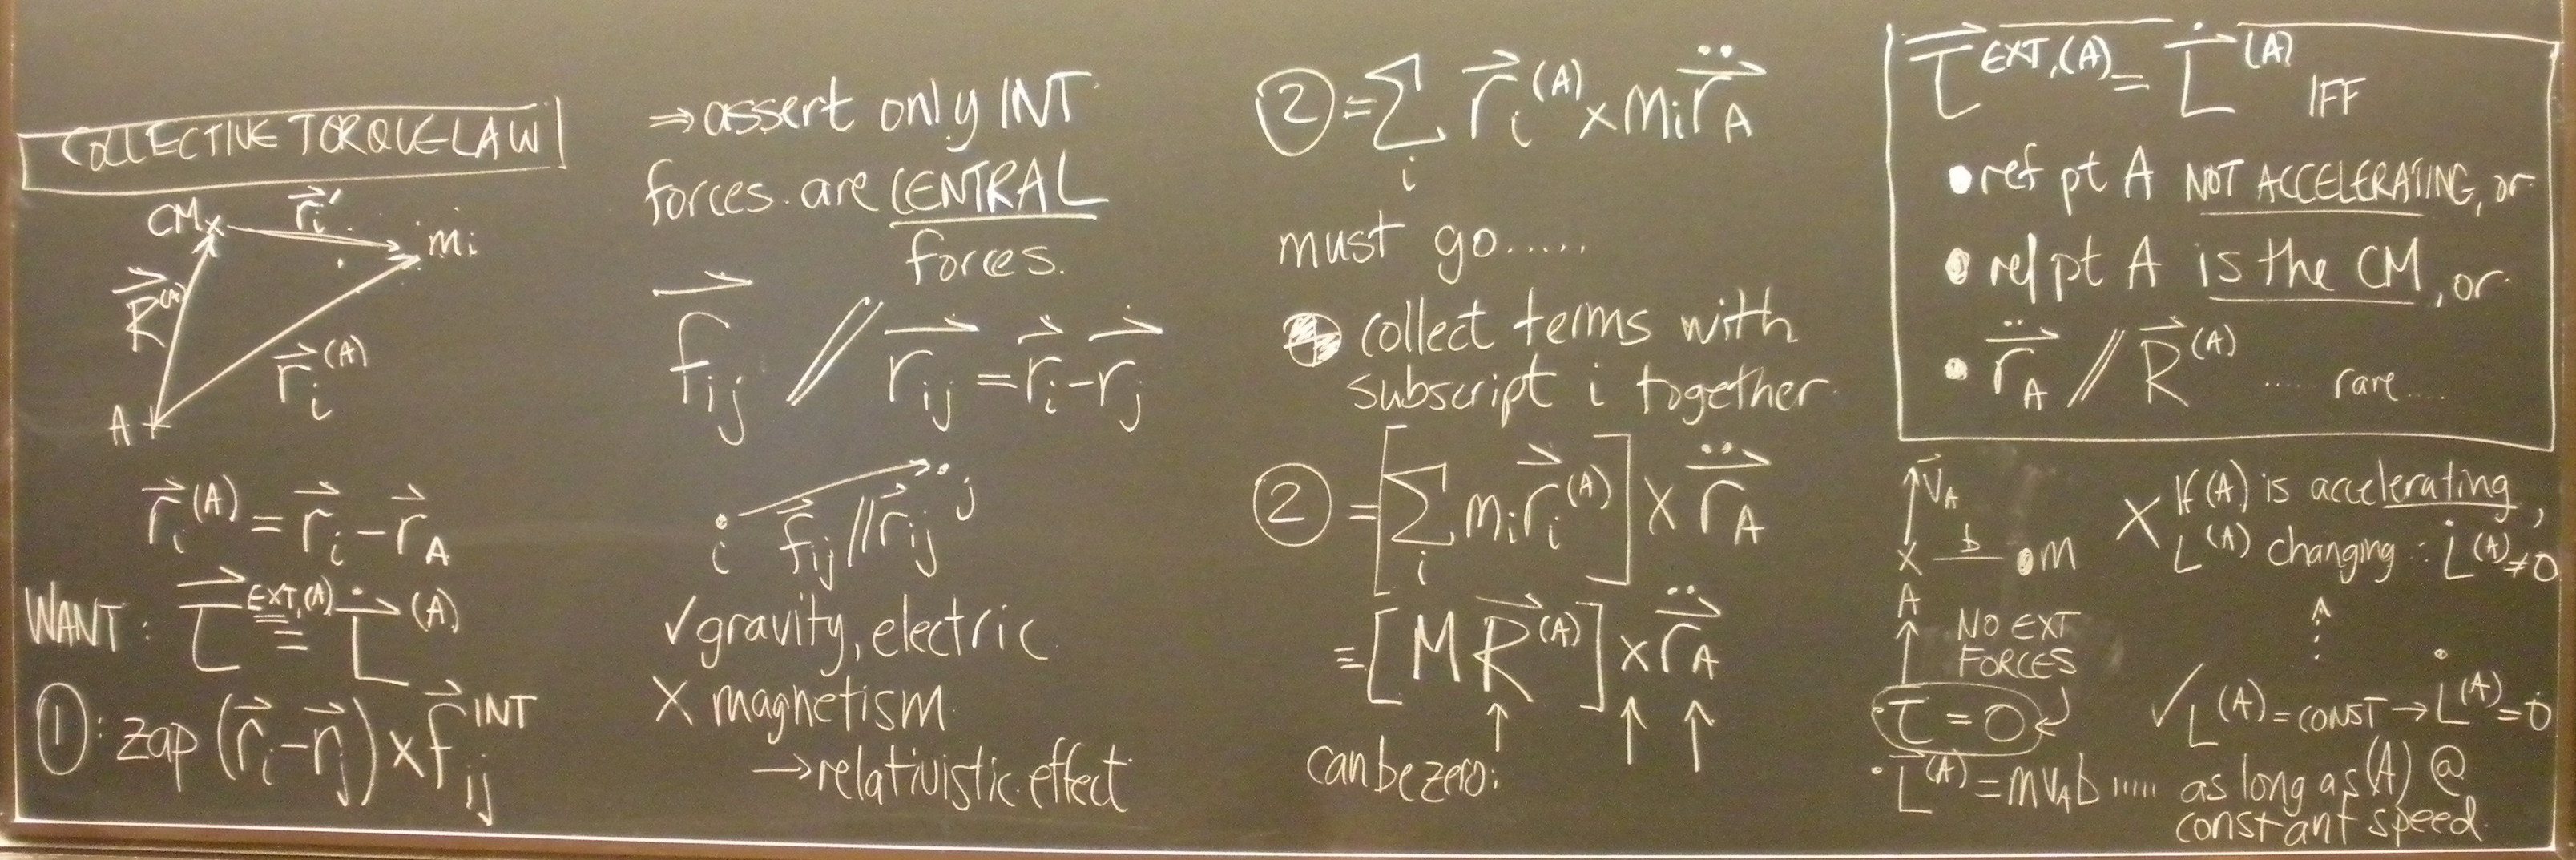 COLLECTIVE TORQUE LAW
CM x r⃗ᵢ′ mᵢ
R⃗⁽ᴬ⁾
r⃗ᵢ⁽ᴬ⁾
A
r⃗ᵢ⁽ᴬ⁾ = r⃗ᵢ - r⃗_A
WANT: τ⃗^{EXT,(A)} = L⃗̇^{(A)}
①: zap (r⃗ᵢ - r⃗ⱼ) × f⃗ᵢⱼ^{INT}
⇒ assert only INT
forces are CENTRAL
forces.
f⃗ᵢⱼ // r⃗ᵢⱼ = r⃗ᵢ - r⃗ⱼ
i f⃗ᵢⱼ // r⃗ᵢⱼ j
✓ gravity, electric
X magnetism
→ relativistic effect
② = Σᵢ r⃗ᵢ⁽ᴬ⁾ × mᵢ r⃗̈_A
must go.....
collect terms with
subscript i together
② = [Σᵢ mᵢ r⃗ᵢ⁽ᴬ⁾] × r⃗̈_A
= [M R⃗⁽ᴬ⁾] × r⃗̈_A
can be zero: ↑ ↑ ↑
τ⃗^{EXT,(A)} = L⃗̇^{(A)} IFF
• ref pt A NOT ACCELERATING, or
• ref pt A is the CM, or
• r⃗̈_A // R⃗⁽ᴬ⁾ ..... rare....
↑ v⃗_A
x b m
A
↑ NO EXT
FORCES
• τ = 0
• L⃗⁽ᴬ⁾ = m v_A b ..... as long as (A) @
constant speed
X If (A) is accelerating,
L⁽ᴬ⁾ changing ∴ L̇⁽ᴬ⁾ ≠ 0
✓ L⁽ᴬ⁾ = CONST → L̇⁽ᴬ⁾ = 0